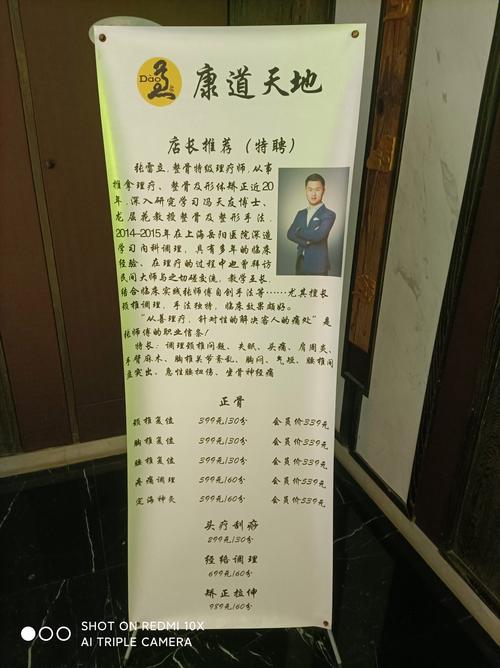 Dào
康道天地
店长推荐（特聘）
张雷立，整骨特级理疗师，从事
推拿理疗、整骨及形体矫正近20
年，深入研究学习冯天友博士、
龙层花教授整骨及整形手法，
2014-2015年在上海岳阳医院深造
学习内科调理，具有多年的临床
经验、在理疗的过程中也曾拜访
民间大师与之切磋交流，教学互长，
结合临床实践张师傅自创手法等……尤其擅长
颈椎调理，手法独特，临床效果颇好。
“从善理疗，针对性的解决客人的痛处”是
张师傅的职业信条！
特长：调理颈椎问题、失眠、头痛、肩周炎、
手臂麻木、胸椎关节紊乱、胸闷、气短、腰椎间
盘突出、急性腰扭伤、坐骨神经痛
正骨
颈椎复位 399元/30分 会员价339元
胸椎复位 399元/30分 会员价339元
腰椎复位 399元/30分 会员价339元
疼痛调理 599元/60分 会员价539元
定海神灸 599元/60分 会员价539元
头疗刮痧
299元/30分
经络调理
699元/60分
矫正拉伸
989元/60分
SHOT ON REDMI 10X
AI TRIPLE CAMERA